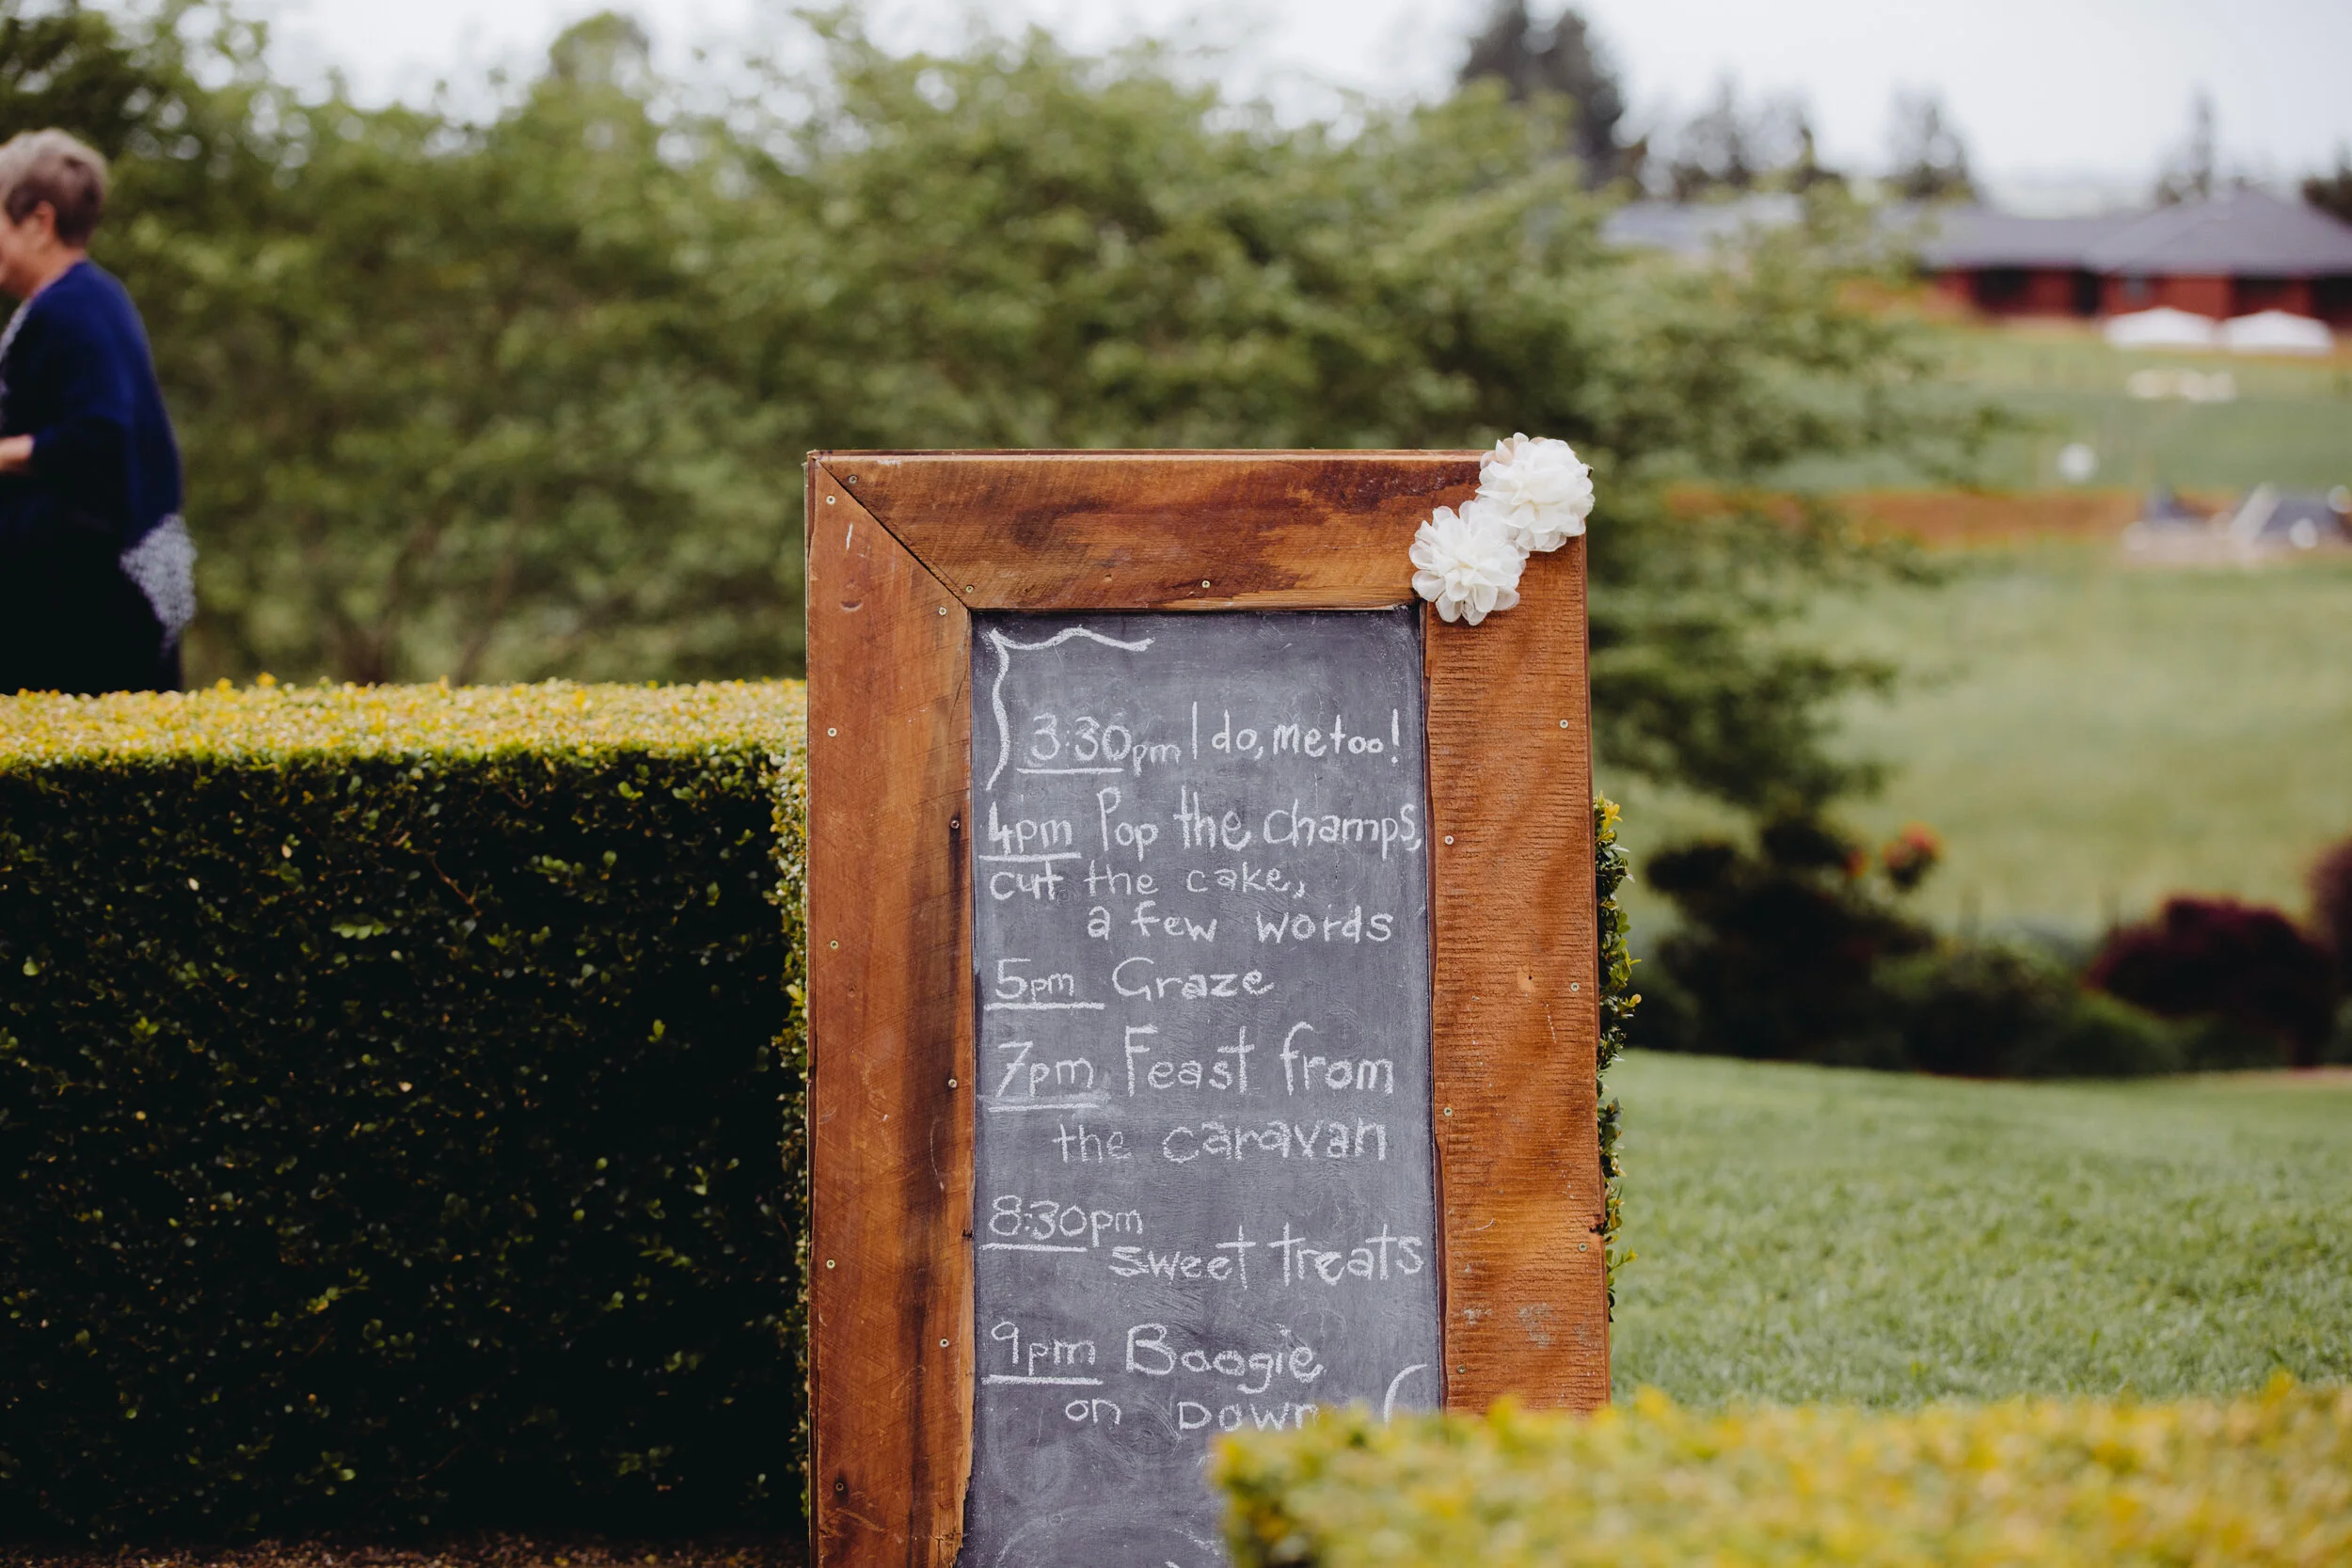 3:30pm I do, me too!
4pm Pop the champs,
cut the cake,
a few words
5pm Graze
7pm Feast from
the caravan
8:30pm
sweet treats
9pm Boogie
on Down